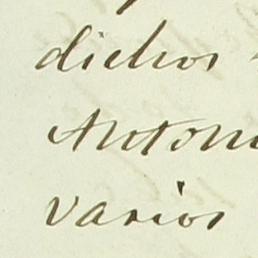 dichos
Antoni
varios